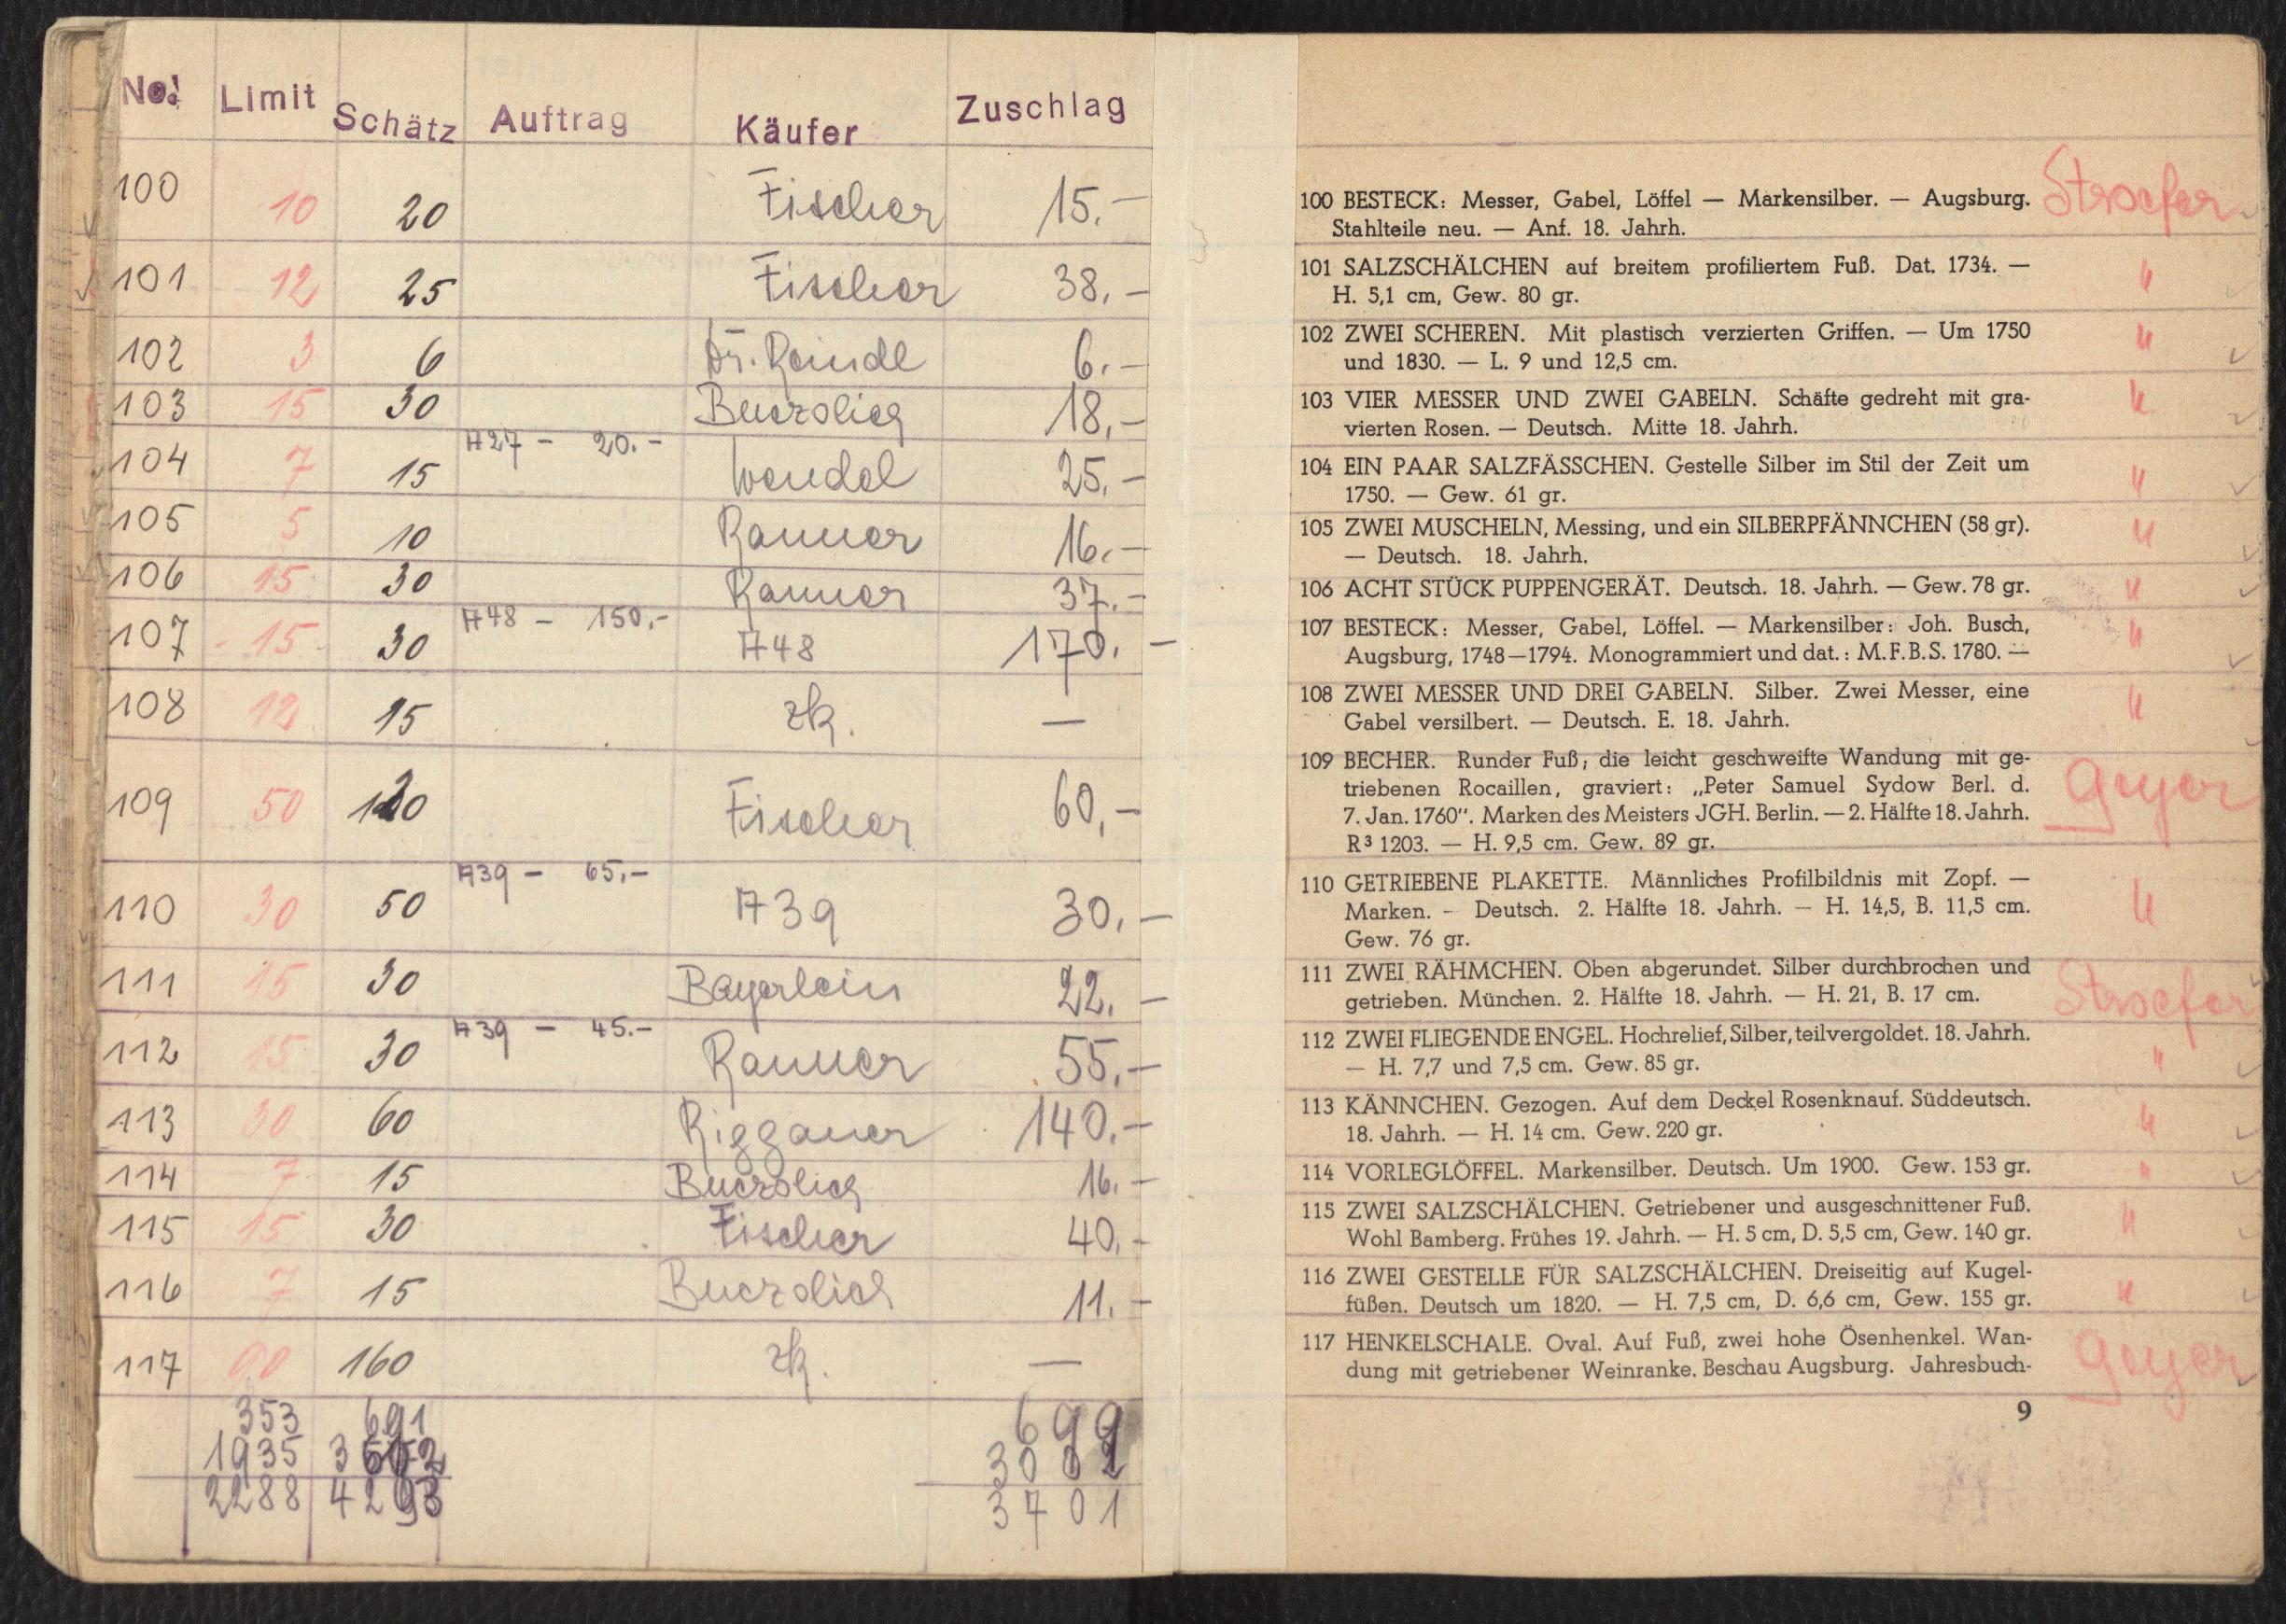 No. Limit Schätz Auftrag Käufer Zuschlag
100 10 20 Fischer 15.–
101 12 25 Fischer 38.–
102 3 6 Dr. Reindl 6.–
103 15 30 18.–
A27 – 20.–
104 7 15 Wendel 25.–
105 5 10 16.–
106 15 30 37.–
A48 – 150.–
107 15 30 A48 170.–
108 12 15 zk. —
109 50 60.–
A39 – 65.–
110 30 50 A39 30.–
111 15 30 Bayerlein 22.–
A39 – 45.–
112 15 30 55.–
113 30 60 Riggauer 140.–
114 7 15 16.–
115 15 30 Fischer 40.–
116 7 15 11.–
117 90 160 zk. —
353 691 699
1935
2288 3701
100 BESTECK: Messer, Gabel, Löffel — Markensilber. — Augsburg. Stroefer
Stahlteile neu. — Anf. 18. Jahrh.
101 SALZSCHÄLCHEN auf breitem profiliertem Fuß. Dat. 1734. — "
H. 5,1 cm, Gew. 80 gr.
102 ZWEI SCHEREN. Mit plastisch verzierten Griffen. — Um 1750 "
und 1830. — L. 9 und 12,5 cm.
103 VIER MESSER UND ZWEI GABELN. Schäfte gedreht mit gra- "
vierten Rosen. — Deutsch. Mitte 18. Jahrh.
104 EIN PAAR SALZFÄSSCHEN. Gestelle Silber im Stil der Zeit um "
1750. — Gew. 61 gr.
105 ZWEI MUSCHELN, Messing, und ein SILBERPFÄNNCHEN (58 gr). "
— Deutsch. 18. Jahrh.
106 ACHT STÜCK PUPPENGERÄT. Deutsch. 18. Jahrh. — Gew. 78 gr. "
107 BESTECK: Messer, Gabel, Löffel. — Markensilber: Joh. Busch, "
Augsburg, 1748—1794. Monogrammiert und dat.: M.F.B.S. 1780. —
108 ZWEI MESSER UND DREI GABELN. Silber. Zwei Messer, eine "
Gabel versilbert. — Deutsch. E. 18. Jahrh.
109 BECHER. Runder Fuß; die leicht geschweifte Wandung mit ge- Geyer
triebenen Rocaillen, graviert: „Peter Samuel Sydow Berl. d.
7. Jan. 1760“. Marken des Meisters JGH. Berlin. — 2. Hälfte 18. Jahrh.
R³ 1203. — H. 9,5 cm. Gew. 89 gr.
110 GETRIEBENE PLAKETTE. Männliches Profilbildnis mit Zopf. — "
Marken. - Deutsch. 2. Hälfte 18. Jahrh. — H. 14,5, B. 11,5 cm.
Gew. 76 gr.
111 ZWEI RÄHMCHEN. Oben abgerundet. Silber durchbrochen und Stroefer
getrieben. München. 2. Hälfte 18. Jahrh. — H. 21, B. 17 cm.
112 ZWEI FLIEGENDE ENGEL. Hochrelief, Silber, teilvergoldet. 18. Jahrh. "
— H. 7,7 und 7,5 cm. Gew. 85 gr.
113 KÄNNCHEN. Gezogen. Auf dem Deckel Rosenknauf. Süddeutsch. "
18. Jahrh. — H. 14 cm. Gew. 220 gr.
114 VORLEGLÖFFEL. Markensilber. Deutsch. Um 1900. Gew. 153 gr. "
115 ZWEI SALZSCHÄLCHEN. Getriebener und ausgeschnittener Fuß. "
Wohl Bamberg. Frühes 19. Jahrh. — H. 5 cm, D. 5,5 cm, Gew. 140 gr.
116 ZWEI GESTELLE FÜR SALZSCHÄLCHEN. Dreiseitig auf Kugel- "
füßen. Deutsch um 1820. — H. 7,5 cm, D. 6,6 cm, Gew. 155 gr.
117 HENKELSCHALE. Oval. Auf Fuß, zwei hohe Ösenhenkel. Wan- Geyer
dung mit getriebener Weinranke. Beschau Augsburg. Jahresbuch-
9